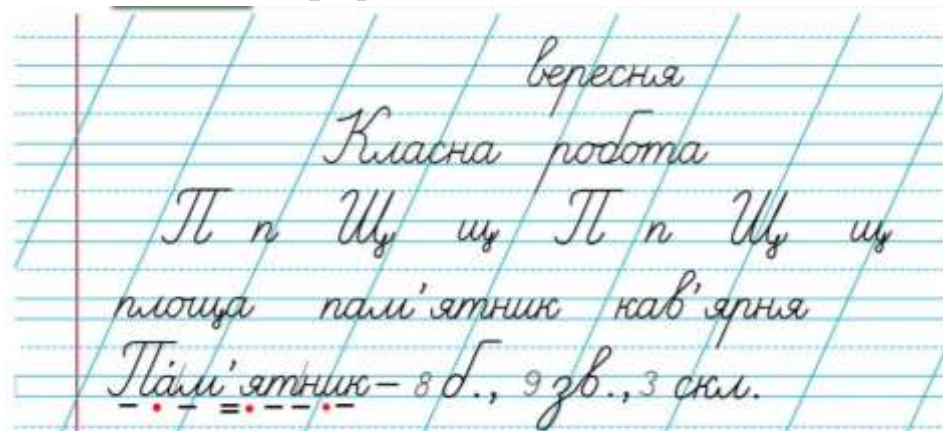 вересня
Класна робота
П п Щ щ П п Щ щ
площа пам’ятник кав’ярня
Пам’ятник – 8 б., 9 зв., 3 скл.